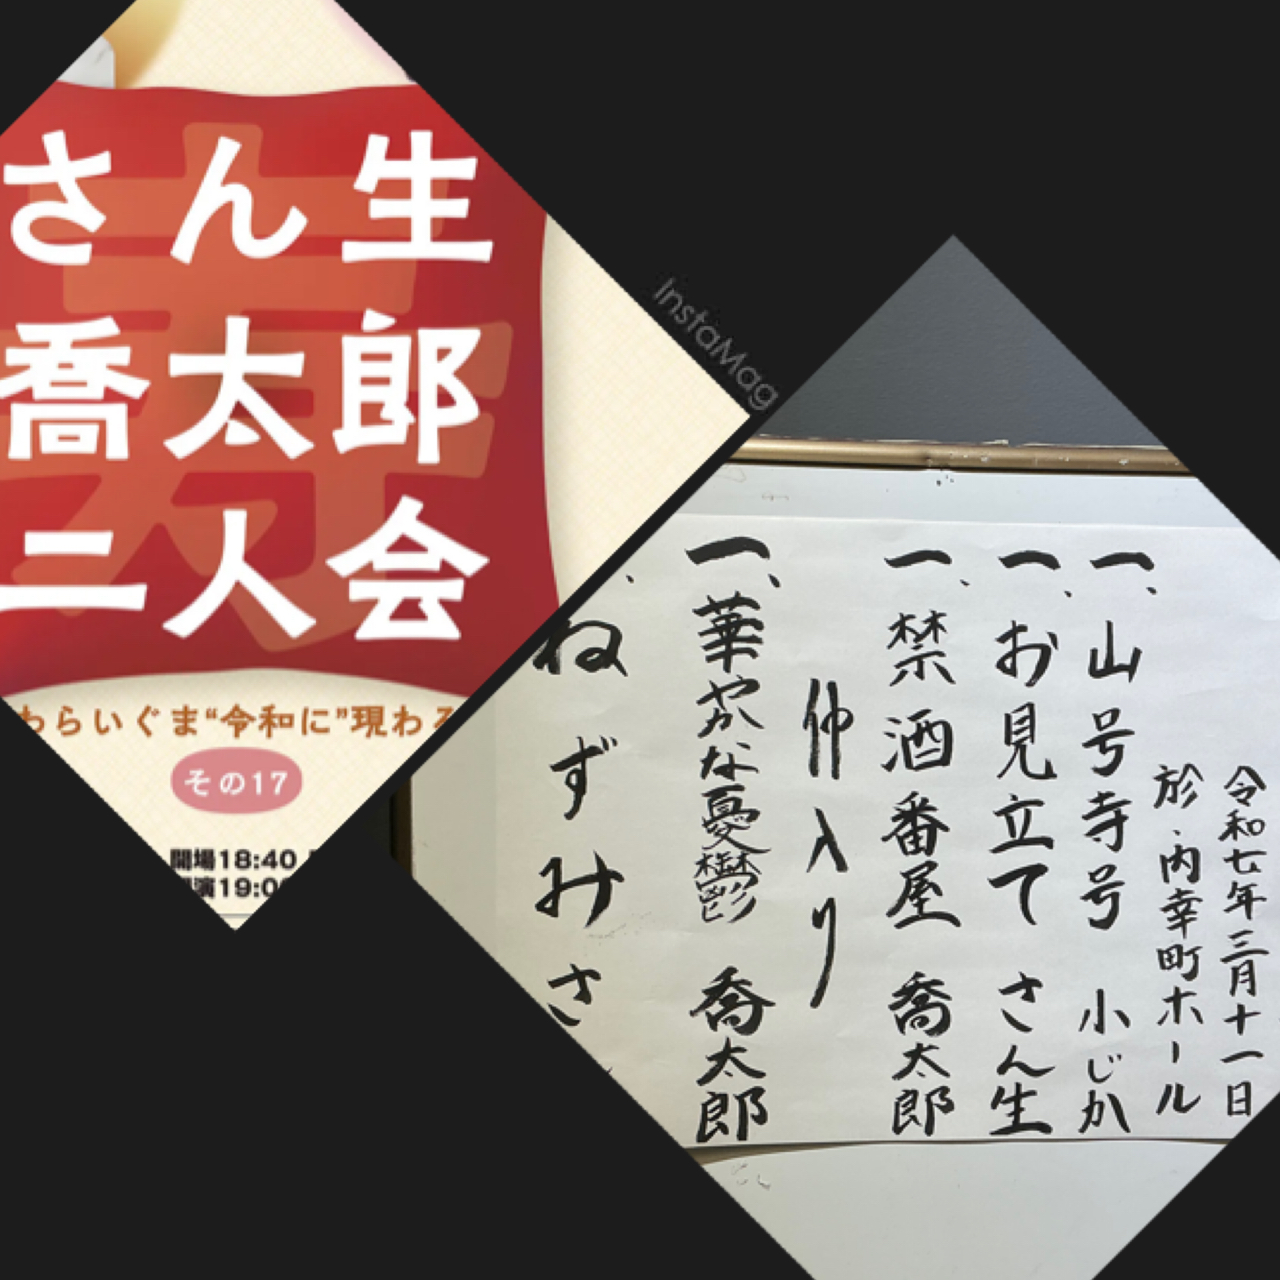 さん生
喬太郎
二人会
わらいぐま“令和に”現わる
その17
開場18:40
開演19:00
InstaMag
令和七年三月十一日
於.内幸町ホール
一、山号寺号 小じか
一、お見立て さん生
一、禁酒番屋 喬太郎
仲入り
一、華やかな憂鬱 喬太郎
、ねずみ さ